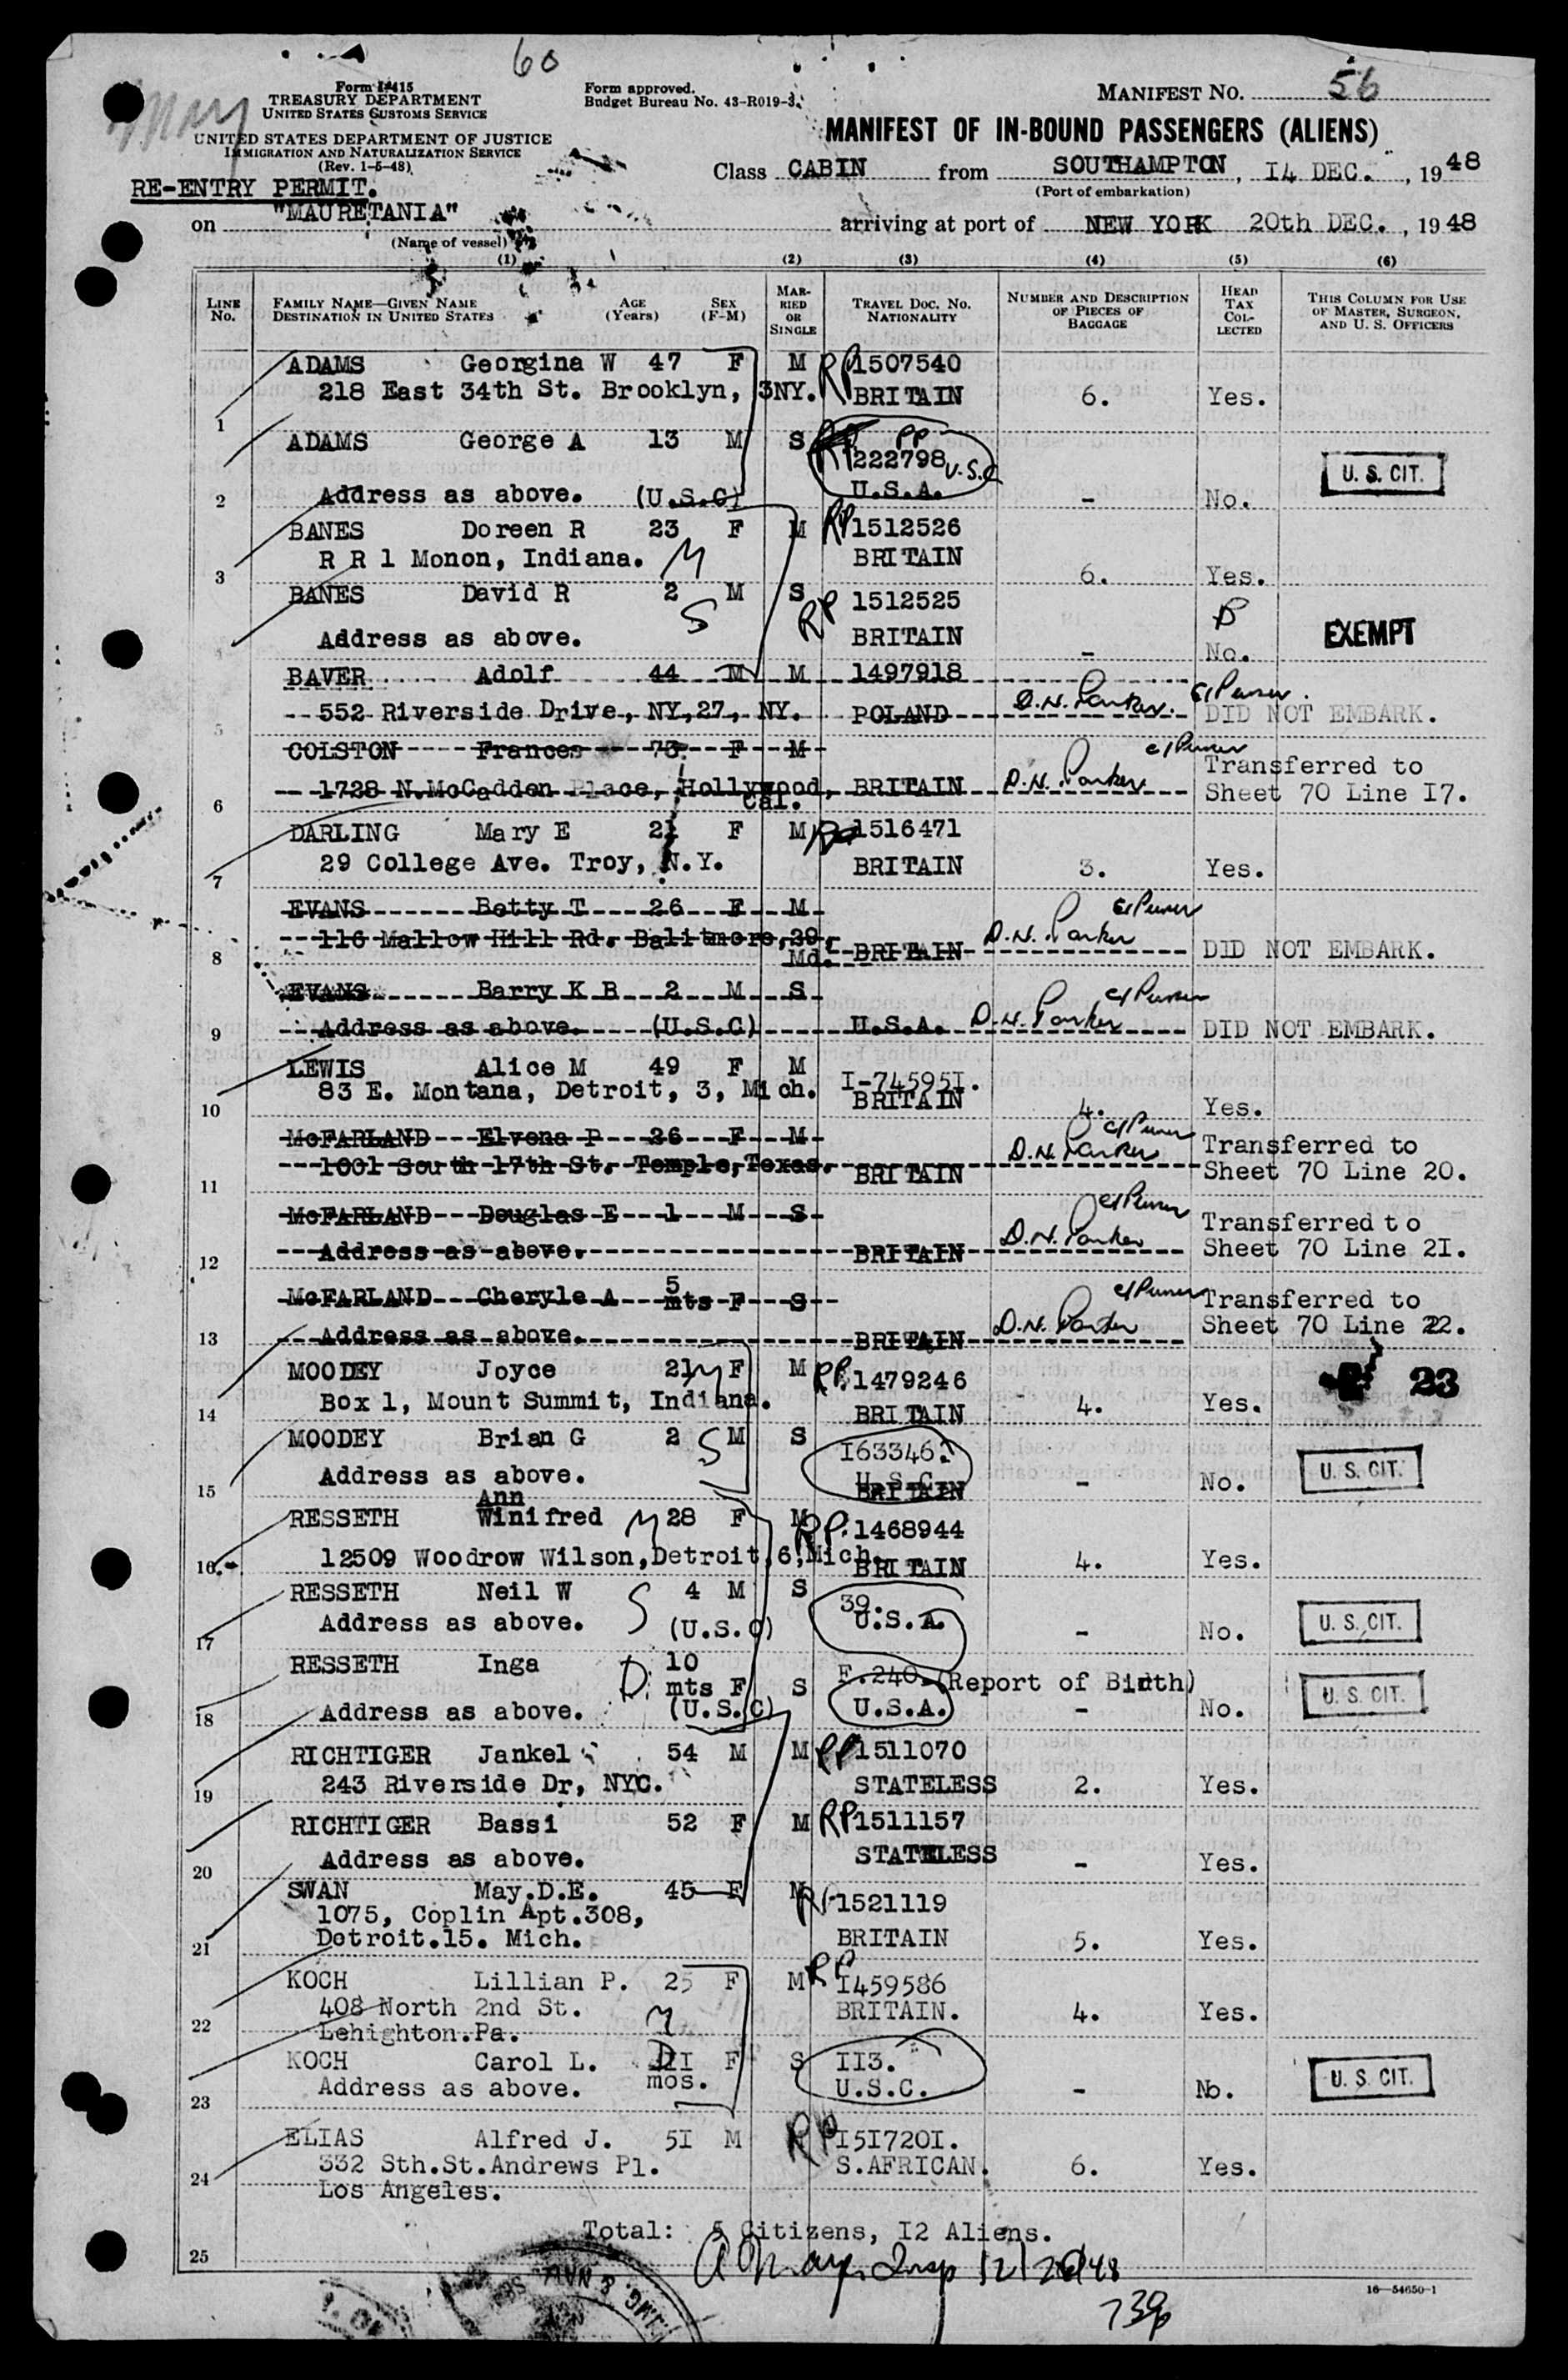 60
Form I-415
TREASURY DEPARTMENT
UNITED STATES CUSTOMS SERVICE
UNITED STATES DEPARTMENT OF JUSTICE
IMMIGRATION AND NATURALIZATION SERVICE
(Rev. 1-5-48)
Form approved.
Budget Bureau No. 43-R019-3.
MANIFEST NO. 56
MANIFEST OF IN-BOUND PASSENGERS (ALIENS)
Class CABIN from SOUTHAMPTON, 14 DEC., 1948
(Port of embarkation)
RE-ENTRY PERMIT.
on "MAURETANIA" arriving at port of NEW YORK 20th DEC., 1948
(Name of vessel)
(1) (2) (3) (4) (5) (6)
LINE No.
FAMILY NAME—GIVEN NAME DESTINATION IN UNITED STATES
AGE (Years)
SEX (F-M)
MARRIED OR SINGLE
TRAVEL DOC. No. NATIONALITY
NUMBER AND DESCRIPTION OF PIECES OF BAGGAGE
HEAD TAX COLLECTED
THIS COLUMN FOR USE OF MASTER, SURGEON, AND U. S. OFFICERS
ADAMS Georgina W 47 F M RP 1507540
218 East 34th St. Brooklyn, 3NY. BRITAIN 6. Yes.
1
ADAMS George A 13 M S PP
222798 U.S.C
U. S. CIT.
2 Address as above. (U.S.C) U.S.A. - No.
BANES Doreen R 23 F M RP 1512526
R R 1 Monon, Indiana. M BRITAIN
3 6. Yes.
BANES David R 2 M S RP 1512525
S
Address as above. BRITAIN - No. EXEMPT
BAVER Adolf 44 M M 1497918
5 552 Riverside Drive, NY,27, NY. POLAND D.N. Parker. C/Purser. DID NOT EMBARK.
COLSTON Frances 73 F M C/Purser
Transferred to
6 1728 N.McCadden Place, Hollywood, Cal. BRITAIN D.N. Parker Sheet 70 Line I7.
DARLING Mary E 21 F M RP 1516471
7 29 College Ave. Troy, N.Y. BRITAIN 3. Yes.
EVANS Betty T 26 F M C/Purser
116 Mallow Hill Rd. Balitmore,29,
8 Md. BRITAIN D.N. Parker DID NOT EMBARK.
EVANS Barry K B 2 M S C/Purser
9 Address as above. (U.S.C) U.S.A. D.N. Parker DID NOT EMBARK.
LEWIS Alice M 49 F M I-74595I.
83 E. Montana, Detroit, 3, Mich. BRITAIN
10 4. Yes.
McFARLAND Elvena P 26 F M C/Purser Transferred to
1001 South 17th St. Temple,Texas. BRITAIN D.N. Parker Sheet 70 Line 20.
11
McFARLAND Douglas E 1 M S C/Purser Transferred to
12 Address as above. BRITAIN D.N. Parker Sheet 70 Line 2I.
McFARLAND Cheryle A 5 mts F S C/Purser Transferred to
13 Address as above. BRITAIN D.N. Parker Sheet 70 Line 22.
MOODEY Joyce 21 M F M RP. 1479246 23
14 Box 1, Mount Summit, Indiana. BRITAIN 4. Yes.
MOODEY Brian G 2 S M S I63346.
15 Address as above. U.S.C. BRITAIN - No. U. S. CIT.
Ann
RESSETH Winifred M 28 F M RP. 1468944
16 12509 Woodrow Wilson,Detroit,6,Mich. BRITAIN 4. Yes.
RESSETH Neil W S 4 M S 39.
17 Address as above. (U.S.C) U.S.A. - No. U. S. CIT.
RESSETH Inga D 10 mts F S F.240 (Report of Birth)
18 Address as above. (U.S.C) U.S.A. - No. U. S. CIT.
RICHTIGER Jankel 54 M M RP 1511070
19 243 Riverside Dr, NYC. STATELESS 2. Yes.
RICHTIGER Bassi 52 F M RP 1511157
20 Address as above. STATELESS - Yes.
SWAN May.D.E. 45 F M RP 1521119
1075, Coplin Apt.308,
21 Detroit.15. Mich. BRITAIN 5. Yes.
KOCH Lillian P. 25 F M RP I459586
22 408 North 2nd St. M BRITAIN. 4. Yes.
Lehighton.Pa.
KOCH Carol L. D II mos. F S II3.
23 Address as above. U.S.C. - No. U. S. CIT.
ELIAS Alfred J. 5I M RP I5I720I.
24 332 Sth.St.Andrews Pl. S.AFRICAN. 6. Yes.
Los Angeles.
Total: 5 Citizens, I2 Aliens.
25
Insp 12/20/48
16—54650-1
739